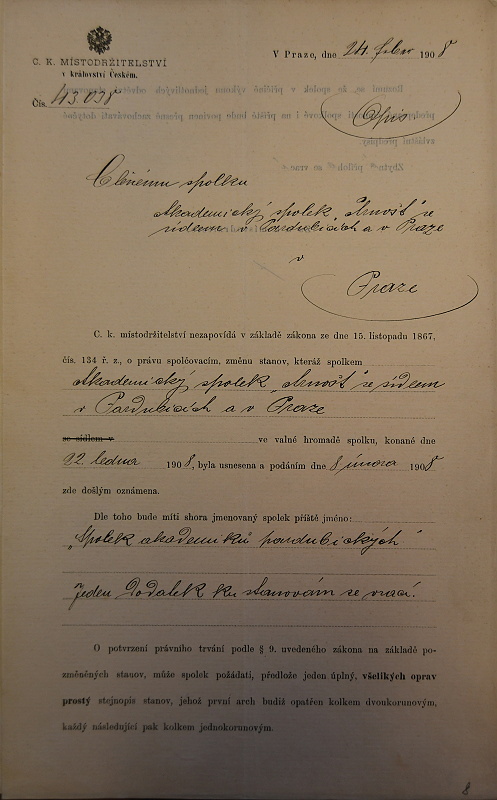 C. K. MÍSTODRŽITELSTVÍ
v království Českém.
Čís. 43.098
V Praze, dne 24. feber 1908
Opis
Ctěnému spolku
Akademický spolek „Arnošt" se
sídlem v Pardubicích a v Praze
v
Praze
C. k. místodržitelství nezapovídá v základě zákona ze dne 15. listopadu 1867,
čís. 134 ř. z., o právu spolčovacím, změnu stanov, kteráž spolkem
Akademický spolek „Arnošt" se sídlem
v Pardubicích a v Praze
se sídlem v ve valné hromadě spolku, konané dne
22. ledna 1908, byla usnesena a podáním dne 8 února 1908
zde došlým oznámena.
Dle toho bude míti shora jmenovaný spolek příště jméno:
„Spolek akademiků pardubických"
Jeden Dodatek ku stanovám se vrací.
O potvrzení právního trvání podle § 9. uvedeného zákona na základě po-
změněných stanov, může spolek požádati, předlože jeden úplný, všelikých oprav
prostý stejnopis stanov, jehož první arch budiž opatřen kolkem dvoukorunovým,
každý následující pak kolkem jednokorunovým.
8